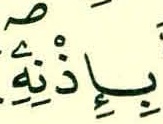 بِإِذْنِهِۦۖ